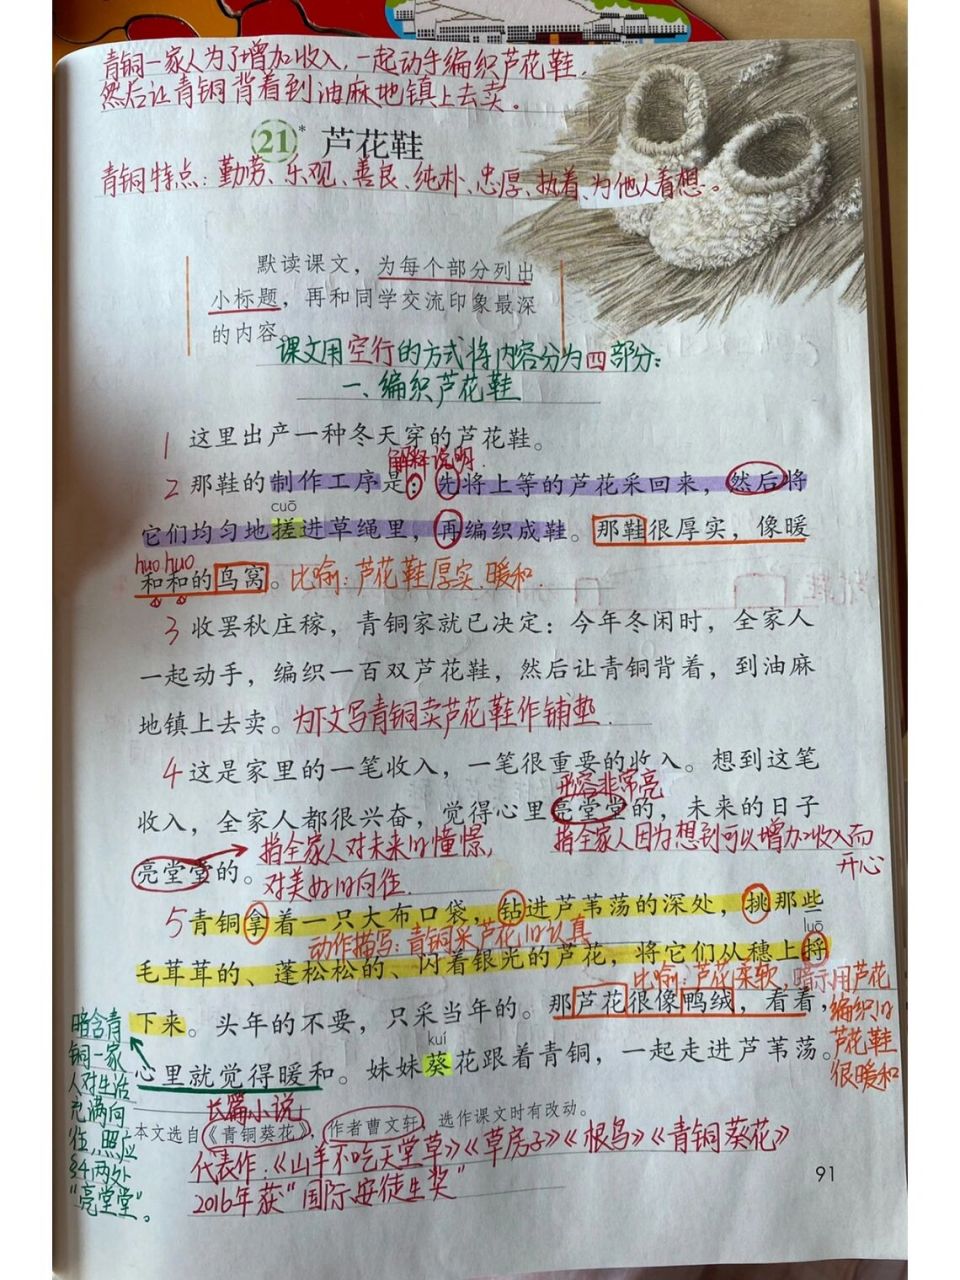 青铜一家人为了增加收入，一起动手编织芦花鞋，
然后让青铜背着到油麻地镇上去卖。
21* 芦花鞋
青铜特点：勤劳、乐观、善良、纯朴、忠厚、执着、为他人着想。
默读课文，为每个部分列出
小标题，再和同学交流印象最深
的内容。
课文用空行的方式将内容分为四部分：
一、编织芦花鞋
1 这里出产一种冬天穿的芦花鞋。
解释说明.
2 那鞋的制作工序是：先将上等的芦花采回来，然后将
cuō
它们均匀地搓进草绳里，再编织成鞋。那鞋很厚实，像暖
huo huo
和和的鸟窝。比喻：芦花鞋厚实、暖和.
3 收罢秋庄稼，青铜家就已决定：今年冬闲时，全家人
一起动手，编织一百双芦花鞋，然后让青铜背着，到油麻
地镇上去卖。为下文写青铜卖芦花鞋作铺垫.
4 这是家里的一笔收入，一笔很重要的收入。想到这笔
形容非常亮
收入，全家人都很兴奋，觉得心里亮堂堂的，未来的日子
指全家人因为想到可以增加收入而
开心
亮堂堂的。
指全家人对未来的憧憬，
对美好的向往.
5 青铜拿着一只大布口袋，钻进芦苇荡的深处，挑那些
动作描写：青铜采芦花的认真
luō
毛茸茸的、蓬松松的、闪着银光的芦花，将它们从穗上捋
比喻：芦花柔软，暗示用芦花
编织的
芦花鞋
很暖和
下来。头年的不要，只采当年的。那芦花很像鸭绒，看着，
kuí
心里就觉得暖和。妹妹葵花跟着青铜，一起走进芦苇荡。
暗含青
铜一家
人对生活
充满向
往，照应
§4两处
“亮堂堂”。
长篇小说
本文选自《青铜葵花》，作者曹文轩，选作课文时有改动。
代表作：《山羊不吃天堂草》《草房子》《根鸟》《青铜葵花》
2016年获“国际安徒生奖”
91